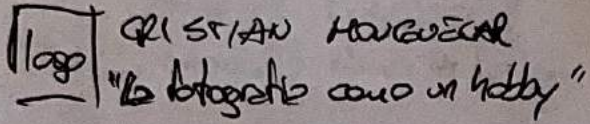 logo
CRISTIAN MONGUECAR
"La fotografia como un hobby"